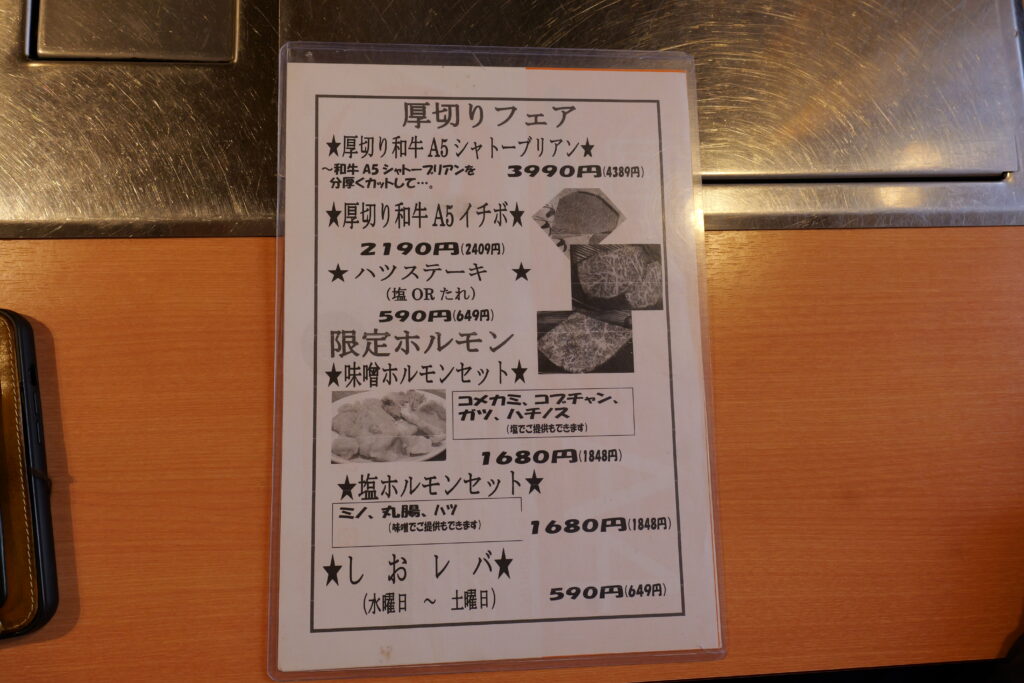 厚切りフェア
★厚切り和牛A5シャトーブリアン★
～和牛A5シャトーブリアンを
分厚くカットして…。
3990円(4389円)
★厚切り和牛A5イチボ★
2190円(2409円)
★ハツステーキ ★
(塩ORたれ)
590円(649円)
限定ホルモン
★味噌ホルモンセット★
コメカミ、コブチャン、
ガツ、ハチノス
(塩でご提供もできます)
1680円(1848円)
★塩ホルモンセット★
ミノ、丸腸、ハツ
(味噌でご提供もできます)
1680円(1848円)
★しおレバ★
(水曜日 ～ 土曜日)
590円(649円)